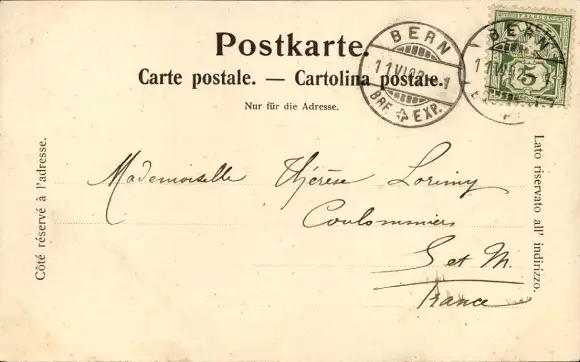 Postkarte.
Carte postale. — Cartolina postale.
Nur für die Adresse.
BERN
11 VI 02
BRF. EXP.
BERN
5
Côté réservé à l'adresse.
Lato riservato all' indirizzo.
Mademoiselle Thérèse Lorimy
Coulommiers
S et M.
France